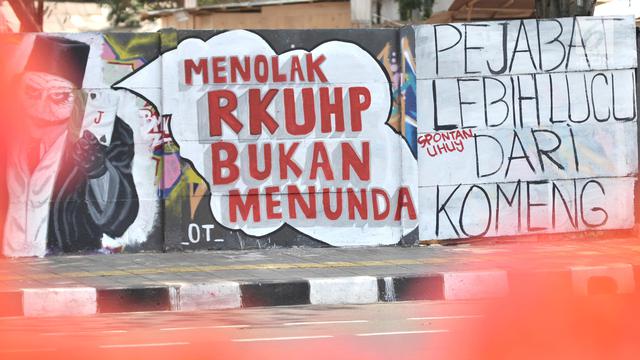 J
MENOLAK
RKUHP
BUKAN
MENUNDA
_OT_
PEJABA
LEBIH LUCU
SPONTAN
UHUY
DARI
KOMENG